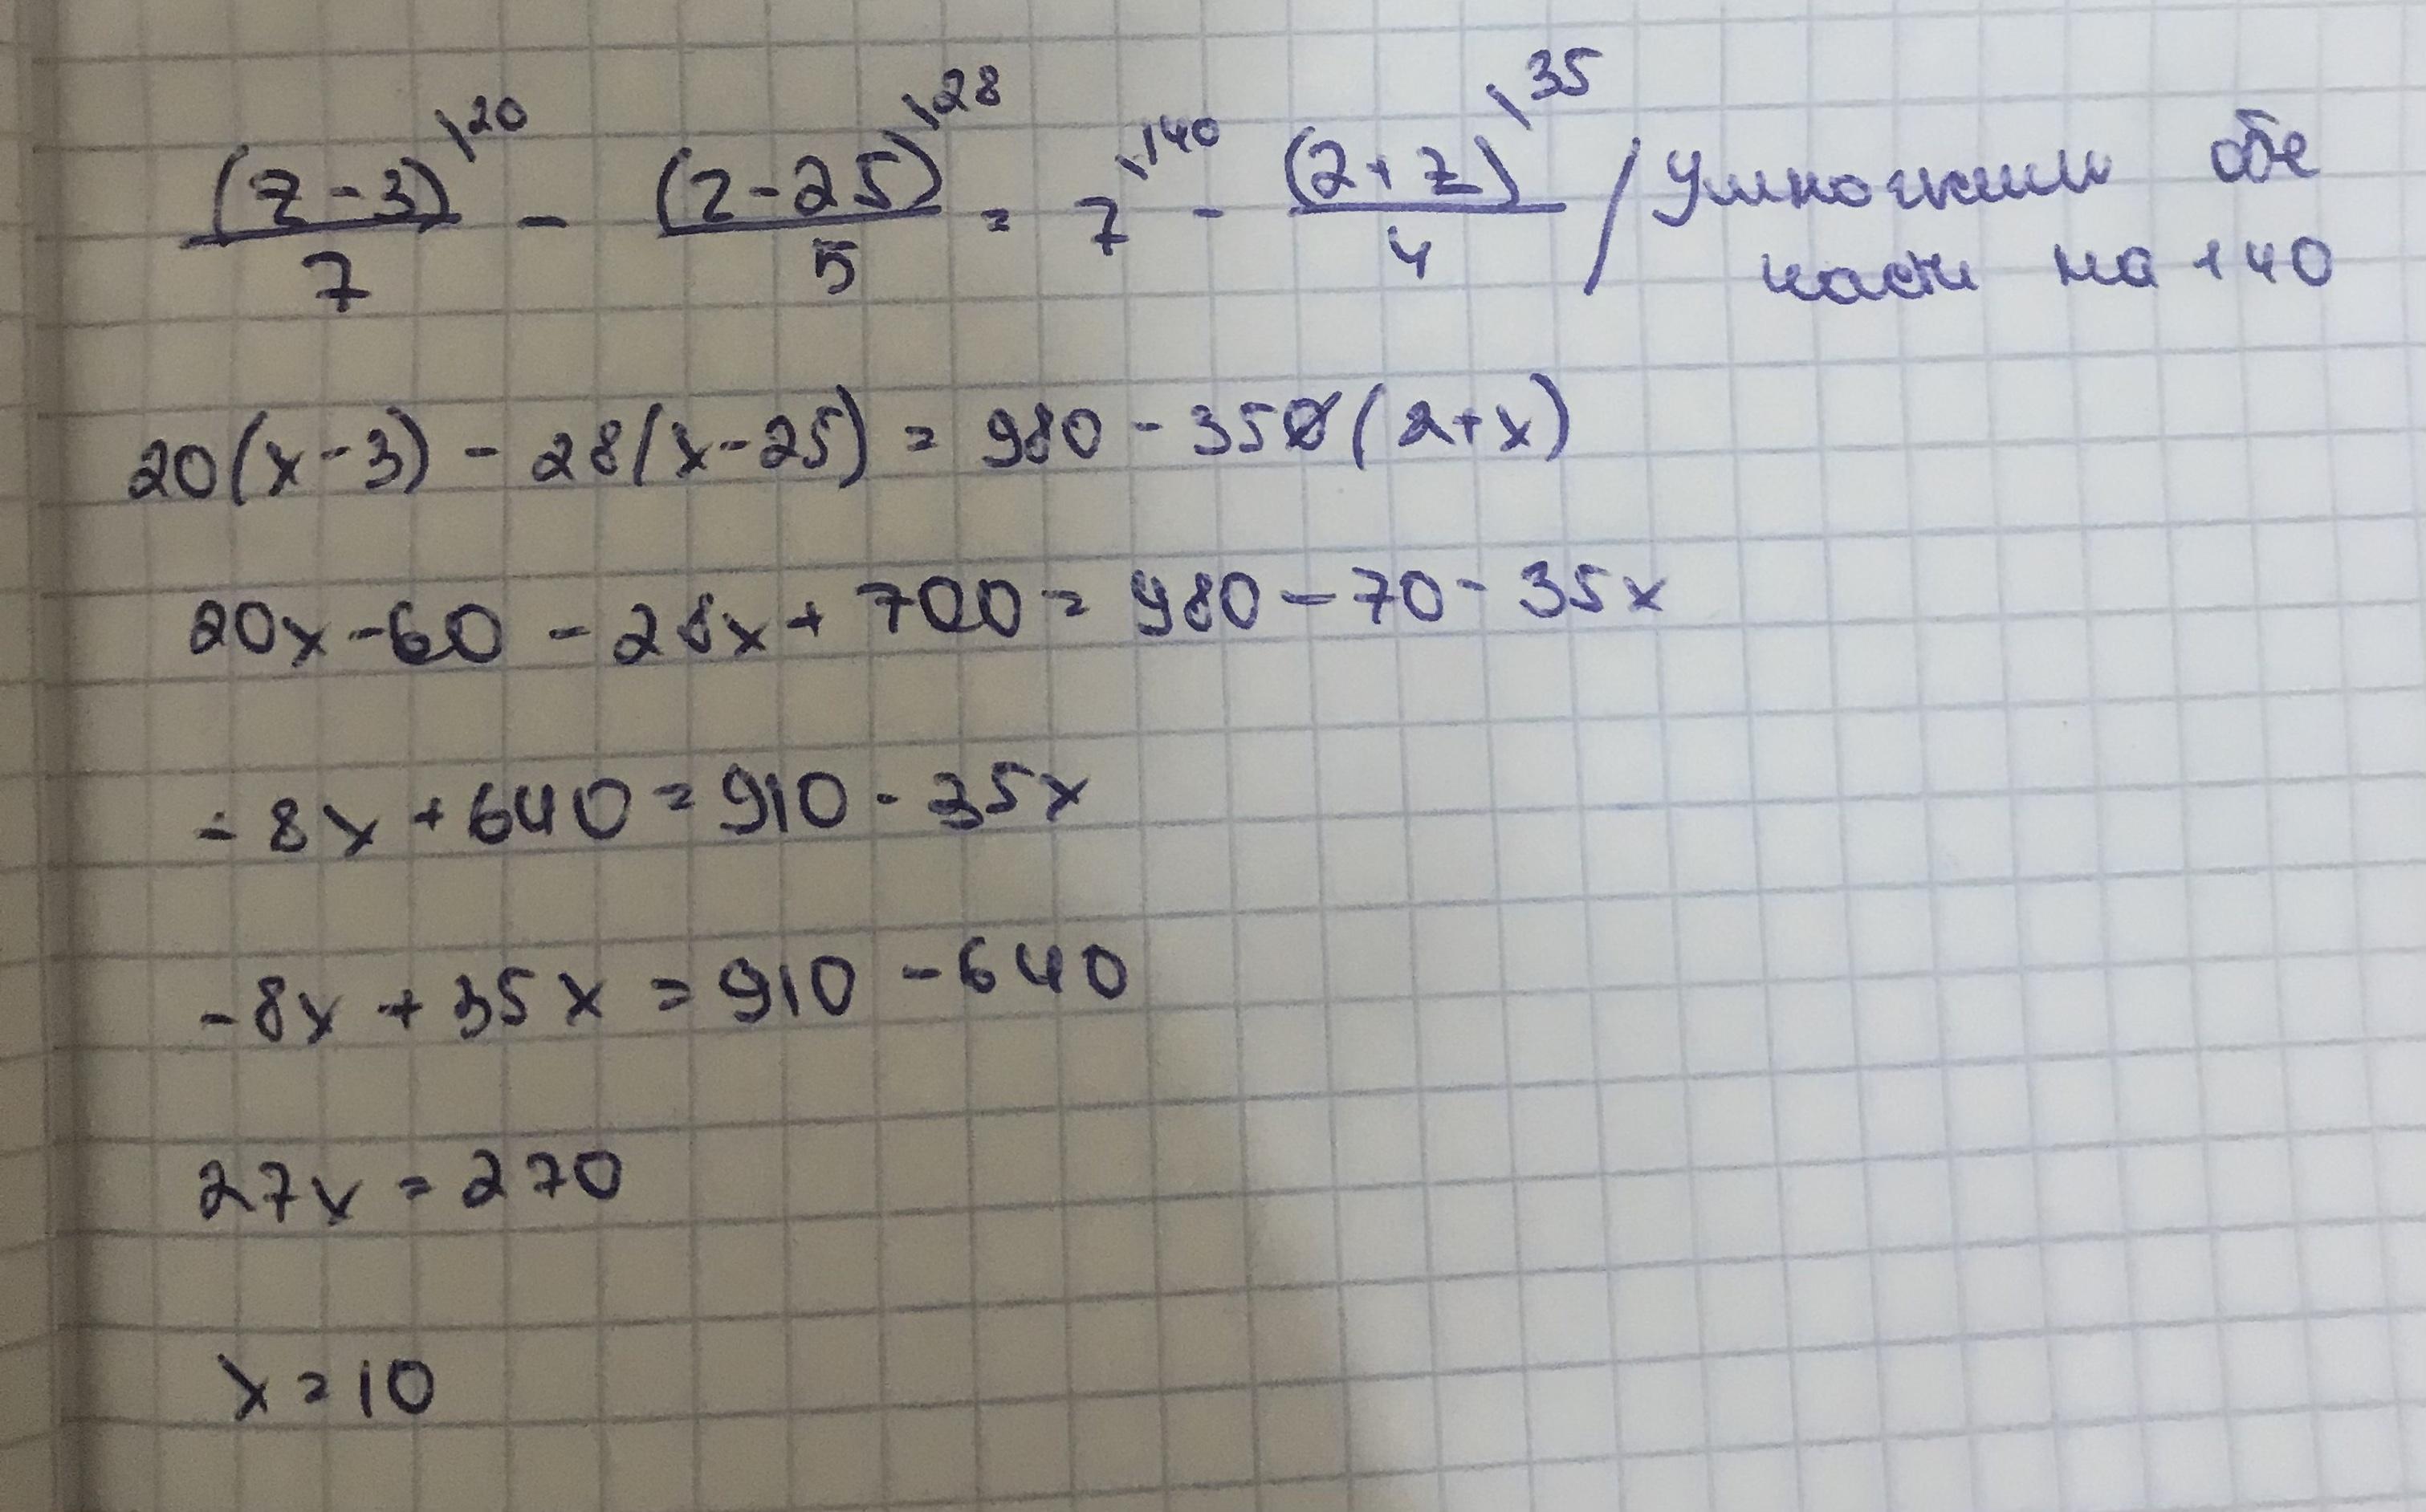 (z-3)\20 / 7 - (z-25)\28 / 5 = 7\140 - (2+z)\35 / 4 / Умножим обе
части на 140
20(x-3) - 28(x-25) = 980 - 35(2+x)
20x-60 - 28x + 700 = 980 - 70 - 35x
-8x + 640 = 910 - 35x
-8x + 35x = 910 - 640
27x = 270
x = 10